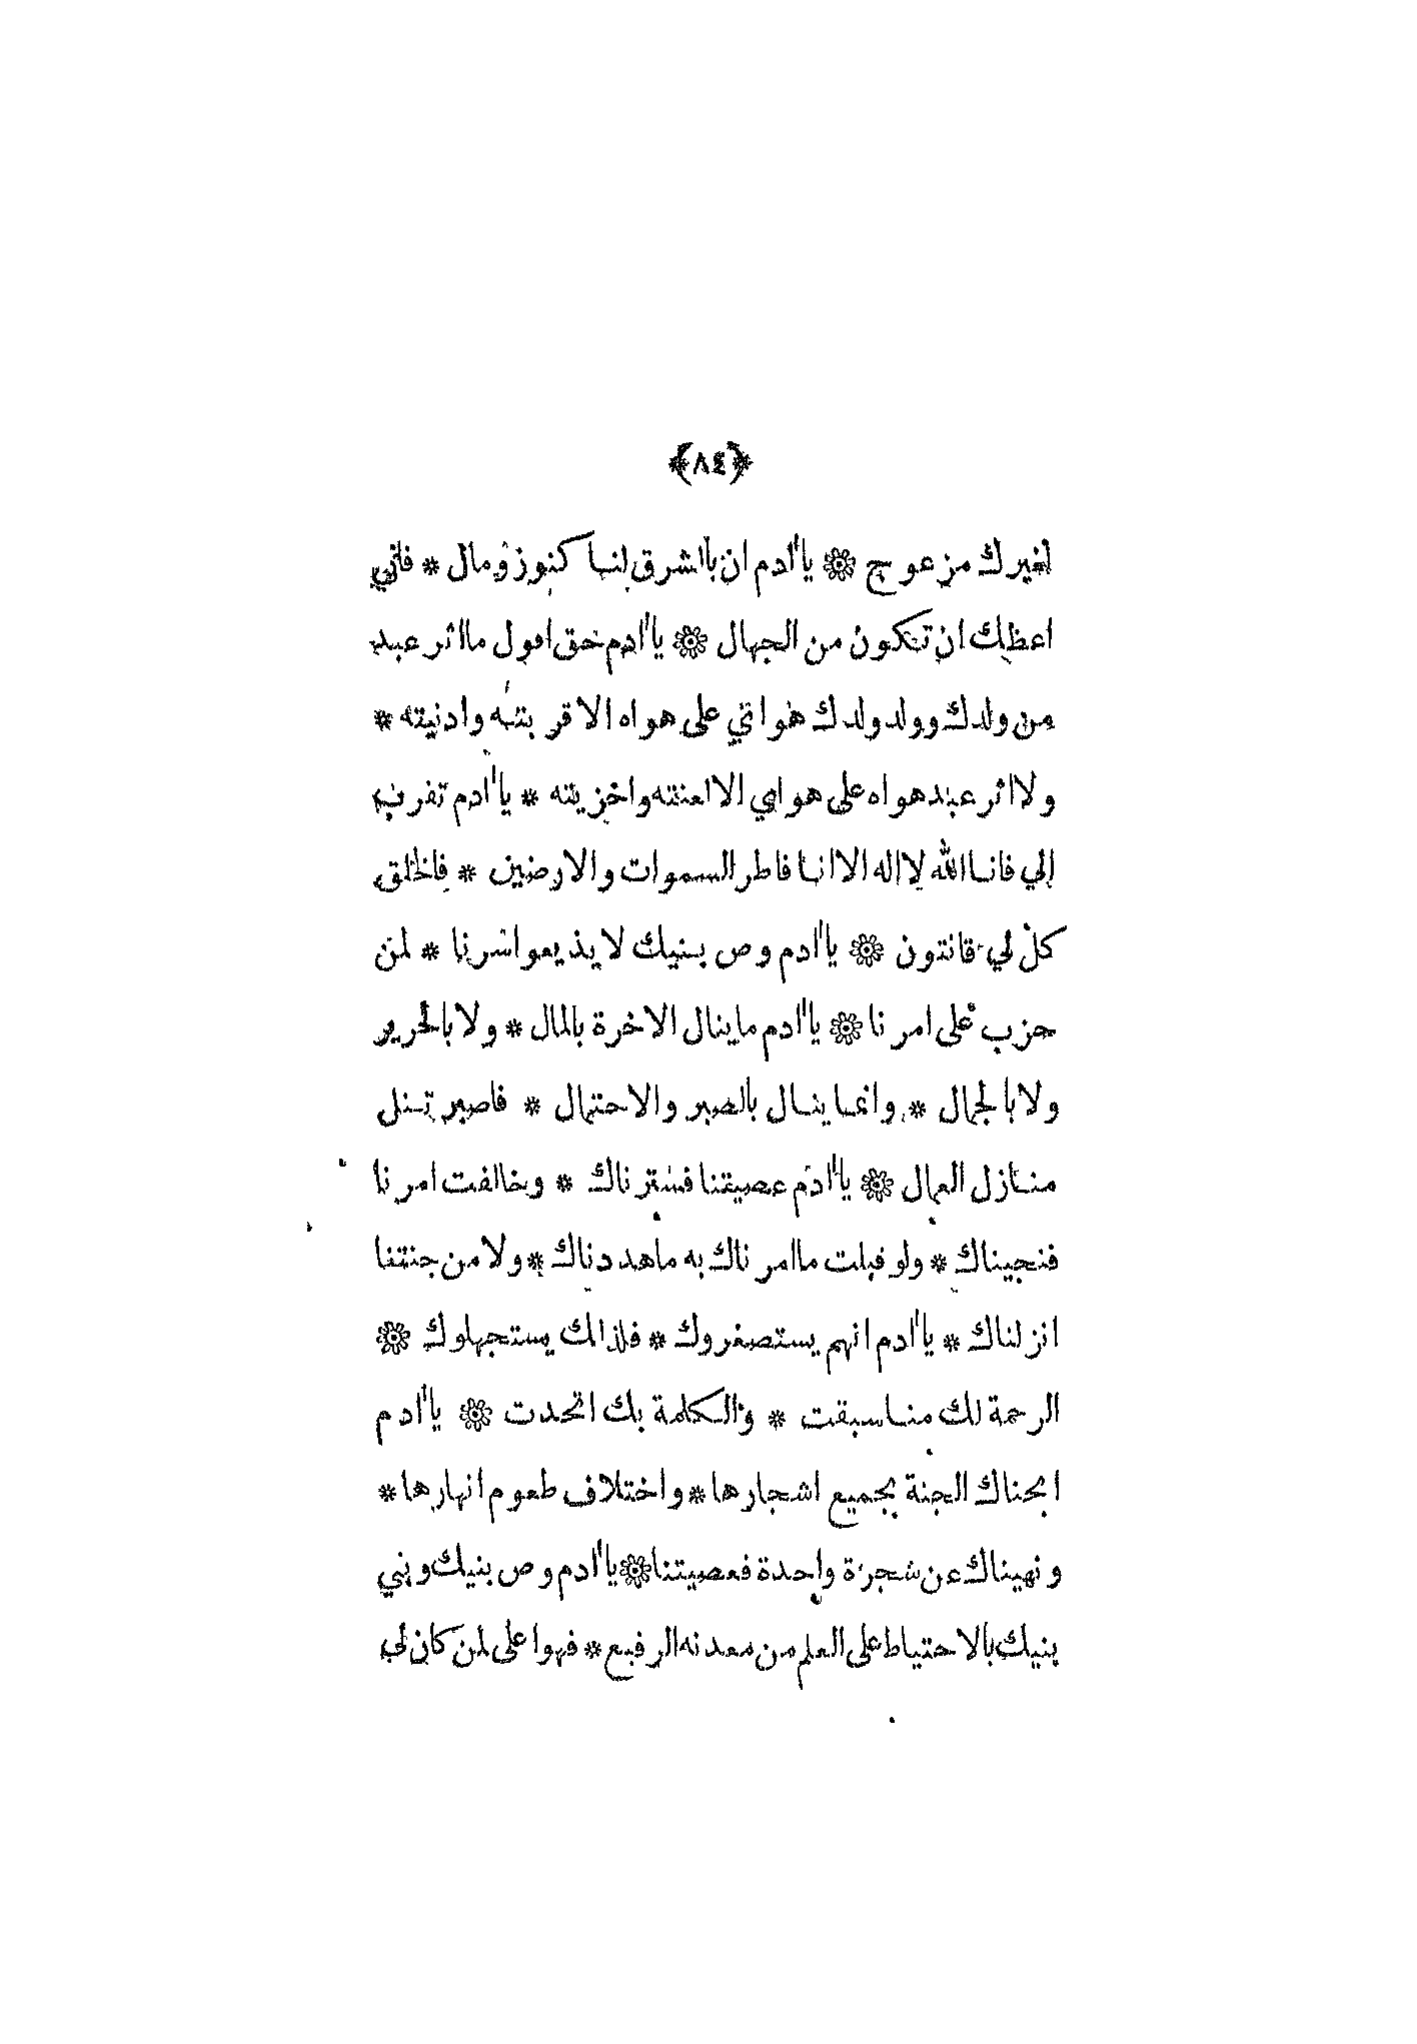 ﴿٨٤﴾
لغيرك من عوج ۞ يا ادم ان بالشرق لنا كنوز ومال * فاني
اعظك ان تكون من الجهال ۞ يا ادم حق اقول ما اثر عبد
من ولدك وولد ولدك هواتي على هواه الا قربته وادنيته *
ولا اثر عبد هواه على هوايي الا لعنته واخزيته * يا ادم تفرب
إلي فانا الله لا اله الا انا فاطر السموات والارضين * فالخلق
كل لي قانتون ۞ يا ادم وص بنيك لا يذيعوا سرنا * لمن
حزب على امرنا ۞ يا ادم ماينال الاخرة بالمال * ولا بالحرير
ولا بالجمال * وانما ينال بالصبر والاحتمال * فاصبر تنل
منازل العمال ۞ يا ادم عصيتنا فسترناك * وخالفت امرنا
فنجيناك * ولو قبلت ما امرناك به ماهددناك * ولا من جنتنا
انزلناك * يا ادم انهم يستصغروك * فلذالك يستجهلوك ۞
الرحمة لك منا سبقت * والكلمة بك اتحدت ۞ يا ادم
ابحناك الجنة بجميع اشجارها * واختلاف طعوم انهارها *
ونهيناك عن شجرة واحدة فعصيتنا ۞ يا ادم وص بنيك وبني
بنيك بالاحتياط على العلم من معدنه الرفيع * فهوا على لمن كان لي